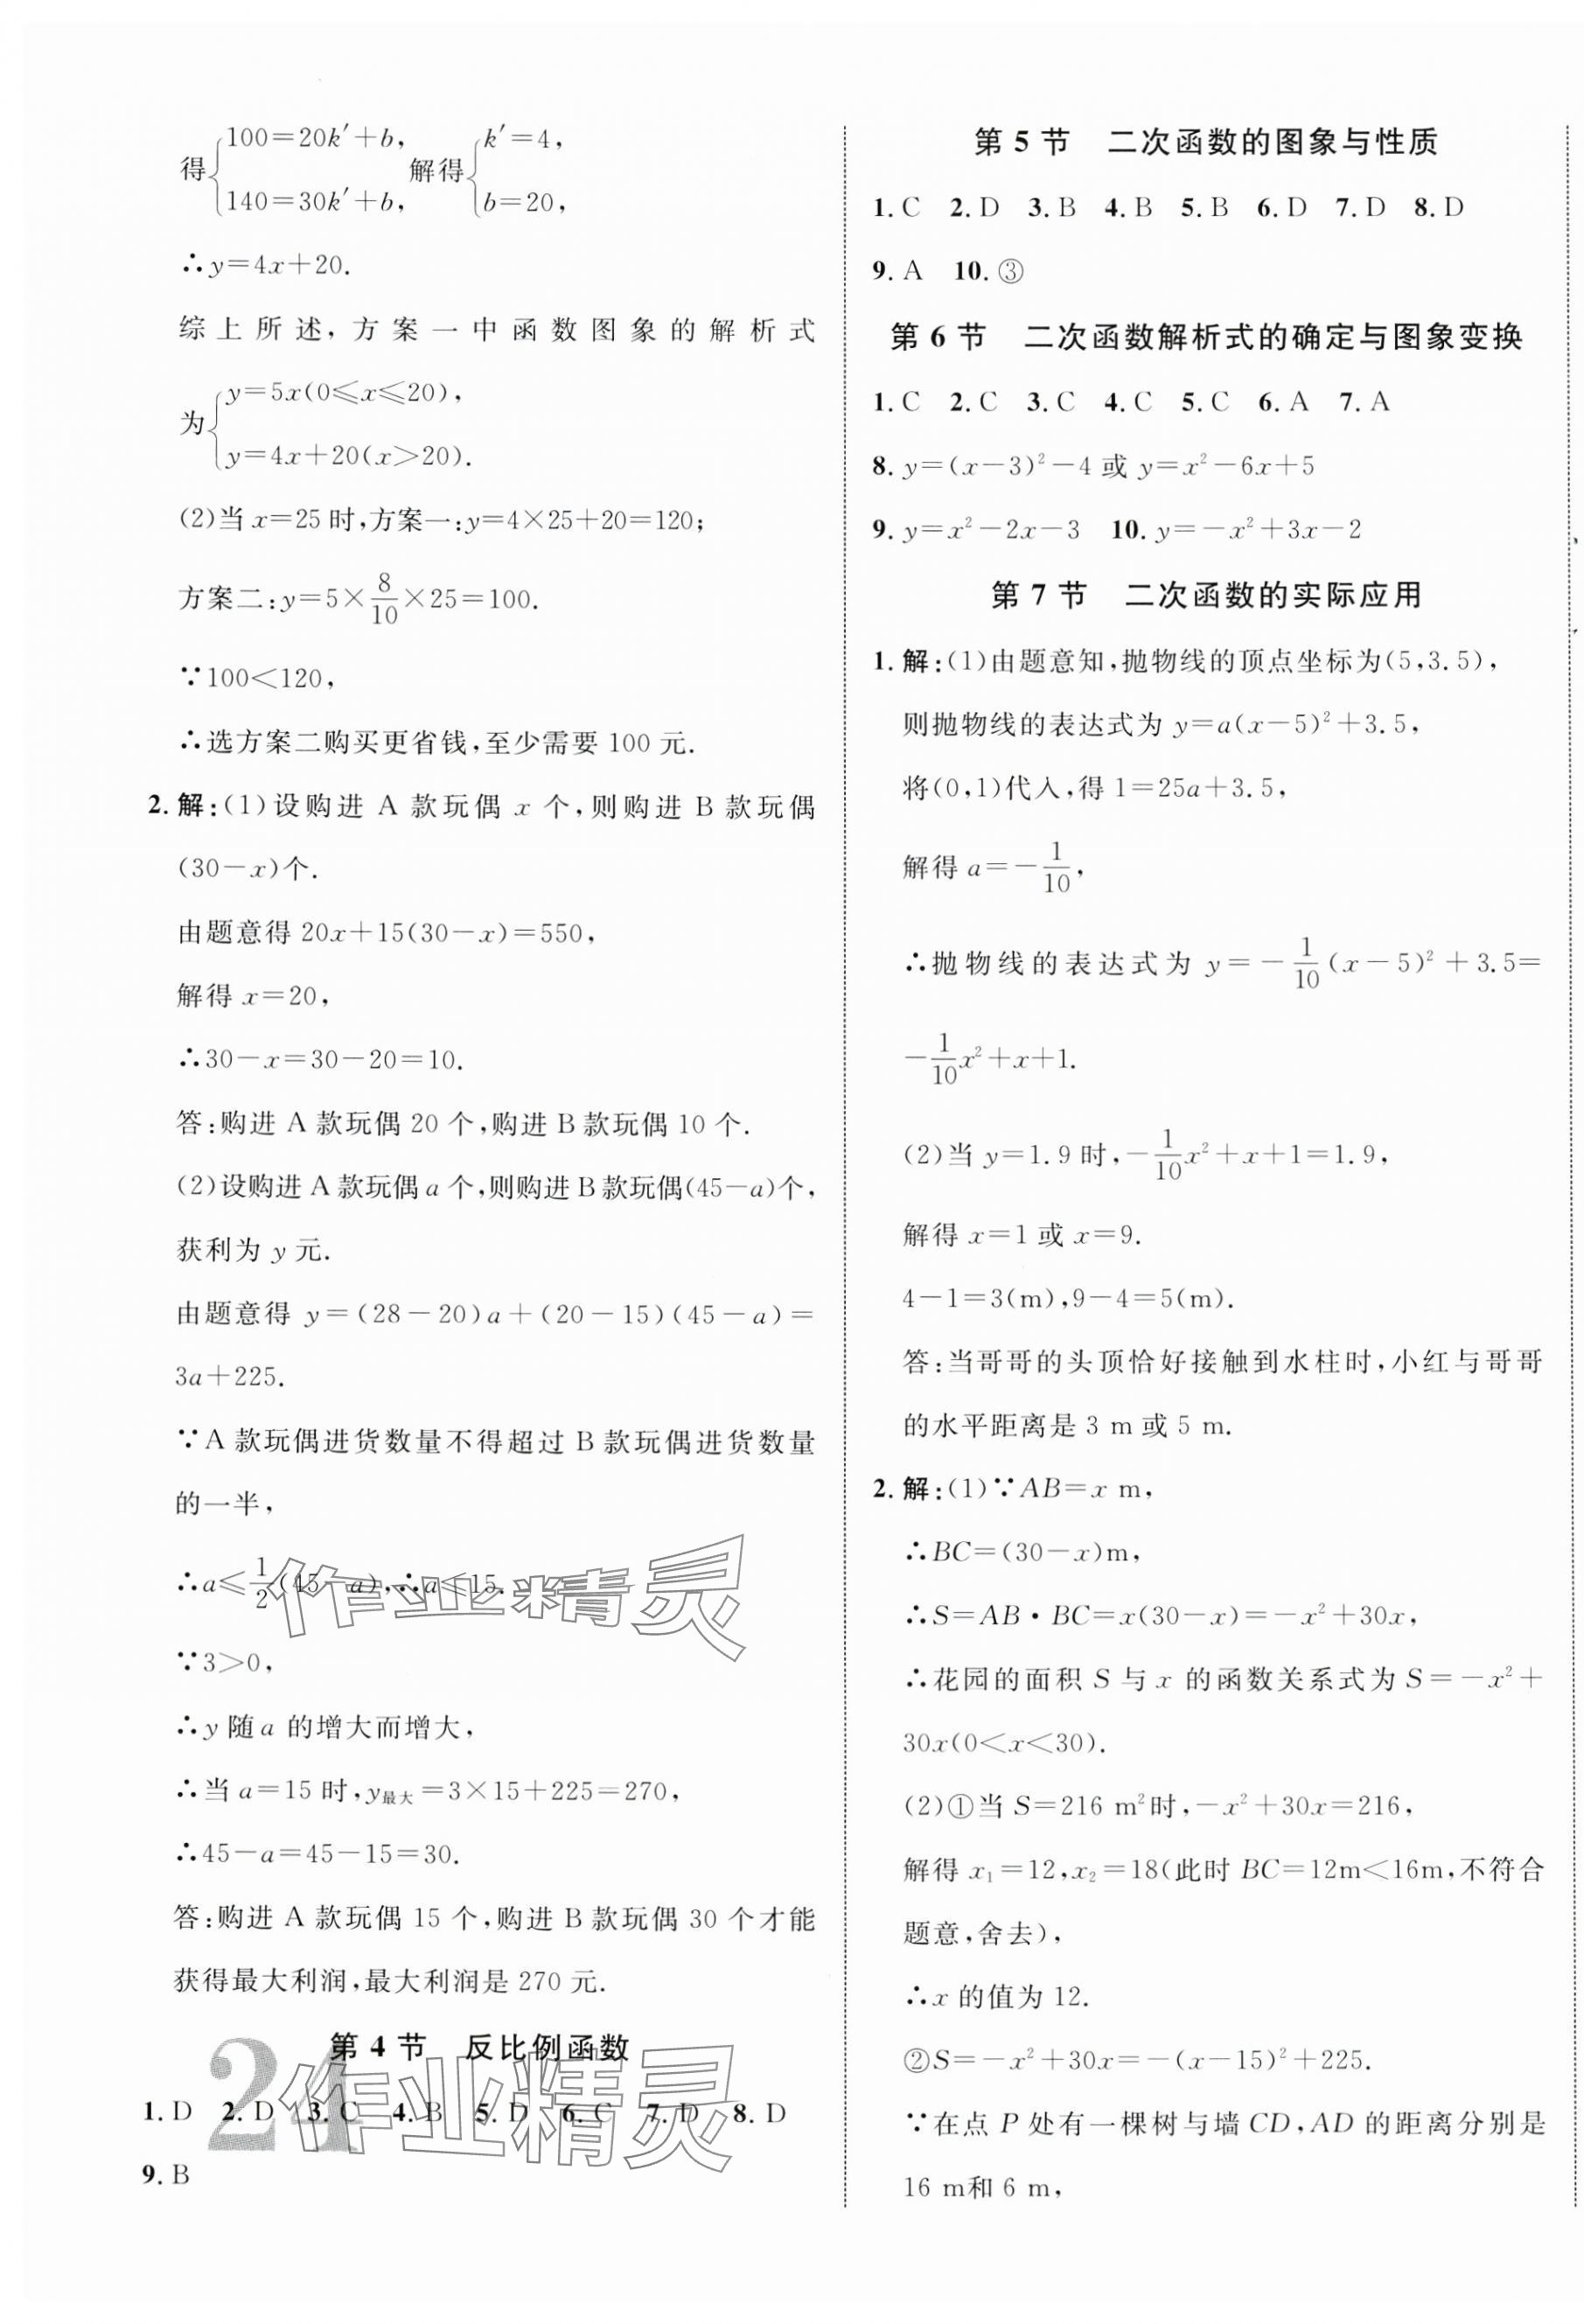 得{100=20k′+b, 140=30k′+b, 解得{k′=4, b=20,
∴y=4x+20.
综上所述,方案一中函数图象的解析式
为{y=5x(0≤x≤20), y=4x+20(x>20).
(2)当 x=25 时,方案一:y=4×25+20=120;
方案二:y=5×8/10×25=100.
∵100<120,
∴选方案二购买更省钱,至少需要 100 元.
2. 解:(1)设购进 A 款玩偶 x 个,则购进 B 款玩偶
(30-x)个.
由题意得 20x+15(30-x)=550,
解得 x=20,
∴30-x=30-20=10.
答:购进 A 款玩偶 20 个,购进 B 款玩偶 10 个.
(2)设购进 A 款玩偶 a 个,则购进 B 款玩偶(45-a)个,
获利为 y 元.
由题意得 y=(28-20)a+(20-15)(45-a)=
3a+225.
∵A 款玩偶进货数量不得超过 B 款玩偶进货数量
的一半,
∴a≤1/2(45-a),∴a≤15.
∵3>0,
∴y 随 a 的增大而增大,
∴当 a=15 时,y最大=3×15+225=270,
∴45-a=45-15=30.
答:购进 A 款玩偶 15 个,购进 B 款玩偶 30 个才能
获得最大利润,最大利润是 270 元.
第 4 节 反比例函数
1. D 2. D 3. C 4. B 5. D 6. C 7. D 8. D
9. B
作业精灵
24
作业精灵
第 5 节 二次函数的图象与性质
1. C 2. D 3. B 4. B 5. B 6. D 7. D 8. D
9. A 10. ③
第 6 节 二次函数解析式的确定与图象变换
1. C 2. C 3. C 4. C 5. C 6. A 7. A
8. y=(x-3)²-4 或 y=x²-6x+5
9. y=x²-2x-3 10. y=-x²+3x-2
第 7 节 二次函数的实际应用
1. 解:(1)由题意知,抛物线的顶点坐标为(5,3.5),
则抛物线的表达式为 y=a(x-5)²+3.5,
将(0,1)代入,得 1=25a+3.5,
解得 a=-1/10,
∴抛物线的表达式为 y=-1/10(x-5)²+3.5=
-1/10x²+x+1.
(2)当 y=1.9 时,-1/10x²+x+1=1.9,
解得 x=1 或 x=9.
4-1=3(m),9-4=5(m).
答:当哥哥的头顶恰好接触到水柱时,小红与哥哥
的水平距离是 3 m 或 5 m.
2. 解:(1)∵AB=x m,
∴BC=(30-x)m,
∴S=AB·BC=x(30-x)=-x²+30x,
∴花园的面积 S 与 x 的函数关系式为 S=-x²+
30x(0<x<30).
(2)①当 S=216 m²时,-x²+30x=216,
解得 x₁=12,x₂=18(此时 BC=12m<16m,不符合
题意,舍去),
∴x 的值为 12.
②S=-x²+30x=-(x-15)²+225.
∵在点 P 处有一棵树与墙 CD,AD 的距离分别是
16 m和 6 m,